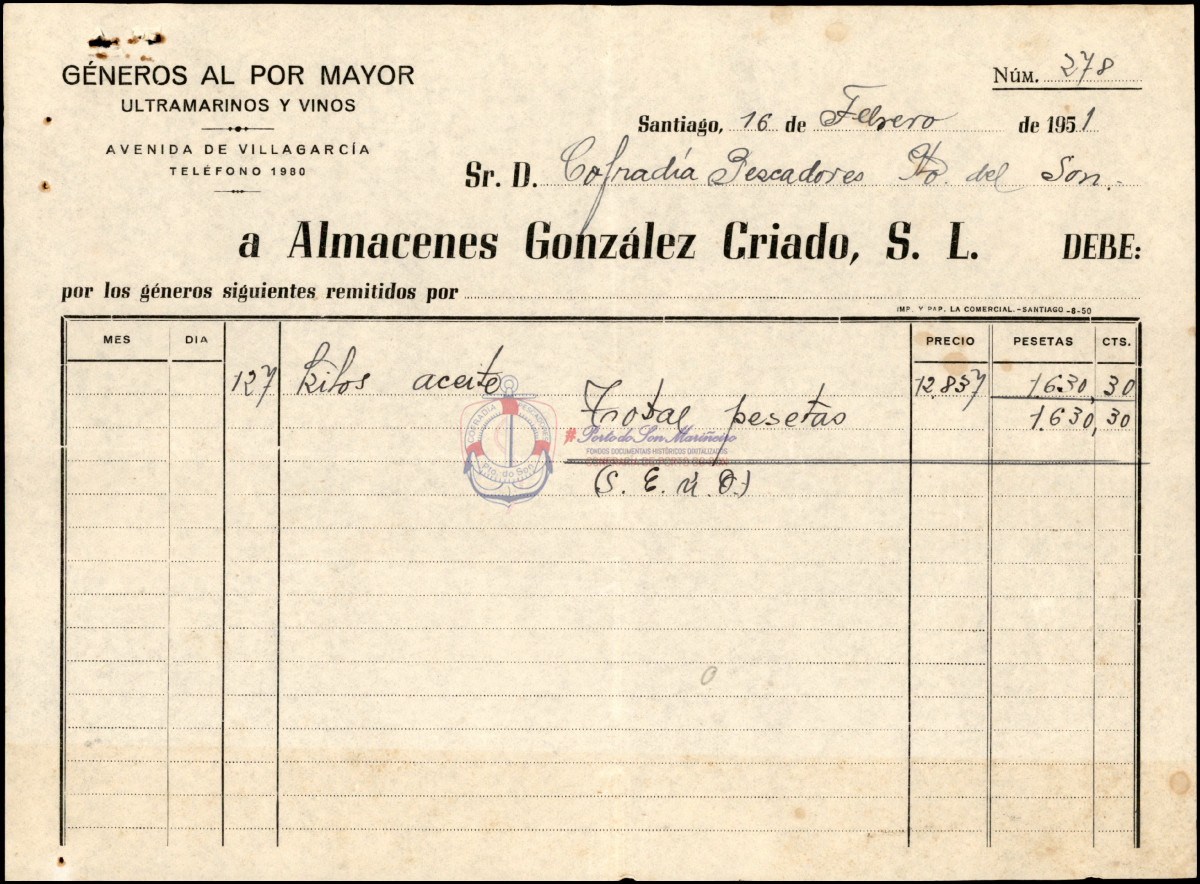 GÉNEROS AL POR MAYOR
ULTRAMARINOS Y VINOS
AVENIDA DE VILLAGARCÍA
TELÉFONO 1980
NÚM. 278
Santiago, 16 de Febrero de 1951
Sr. D. Cofradía Pescadores Pto. del Son.-
a Almacenes González Criado, S. L. DEBE:
por los géneros siguientes remitidos por
IMP. Y PAP. LA COMERCIAL.-SANTIAGO-8-50
MES DIA PRECIO PESETAS CTS.
127 kilos aceite 12.837 1.630,30
Total pesetas 1.630,30
COFRADÍA PESCADORES
Pto. do Son
#Porto do Son Mariñeiro
FONDOS DOCUMENTAIS HISTÓRICOS DIXITALIZADOS
(S. E. u. O.)